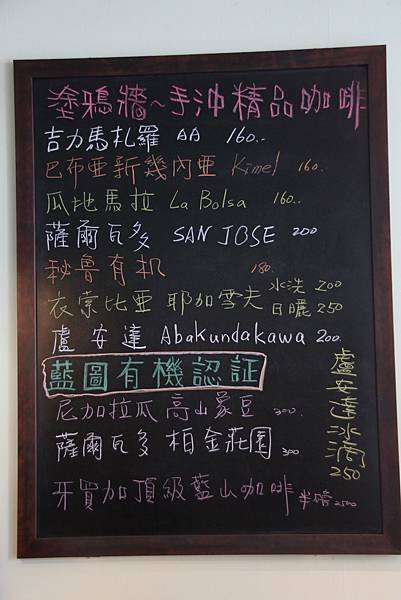 塗鴉牆~手沖精品咖啡
吉力馬札羅 AA 160..
巴布亞新幾內亞 Kimel 160.
瓜地馬拉 La Bolsa 160..
薩爾瓦多 SAN JOSE 200
秘魯有机 180.
衣索比亞 耶加雪夫 水洗 200
日曬 250
盧安達 Abakundakawa 200.
藍圖有機認証
尼加拉瓜高山象豆 300.
薩爾瓦多 柏金莊園 300
牙買加頂級藍山咖啡 半磅2500
盧安達冰滴
250